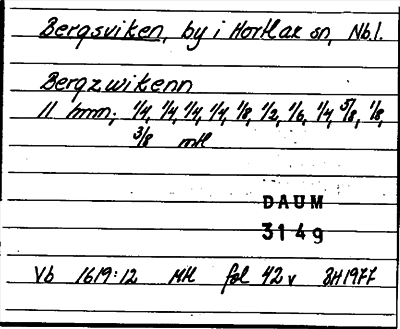 Bergsviken, by i Hortlax sn, Nb.l.
Bergzwikenn
11 hmn; 1/4, 1/4, 1/4, 1/4, 1/8, 1/2, 1/6, 1/4, 5/8, 1/8,
3/8 mtl
DAUM
3149
Vb 1619:12 Mtl fol 42v BH 1977